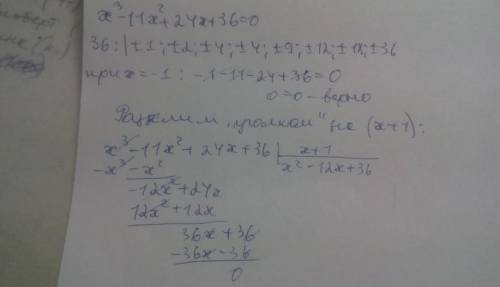 x³-11x²+24x+36=0
36: | ±1; ±2; ±4; ±4; ±9; ±12; ±18; ±36
при x=-1 : -1-11-24+36=0
0=0 - верно
Разделим „уголком" на (x+1):
x³-11x²+24x+36 | x+1
-x³-x² x²-12x+36
-12x²+24x
12x²+12x
36x+36
-36x-36
0